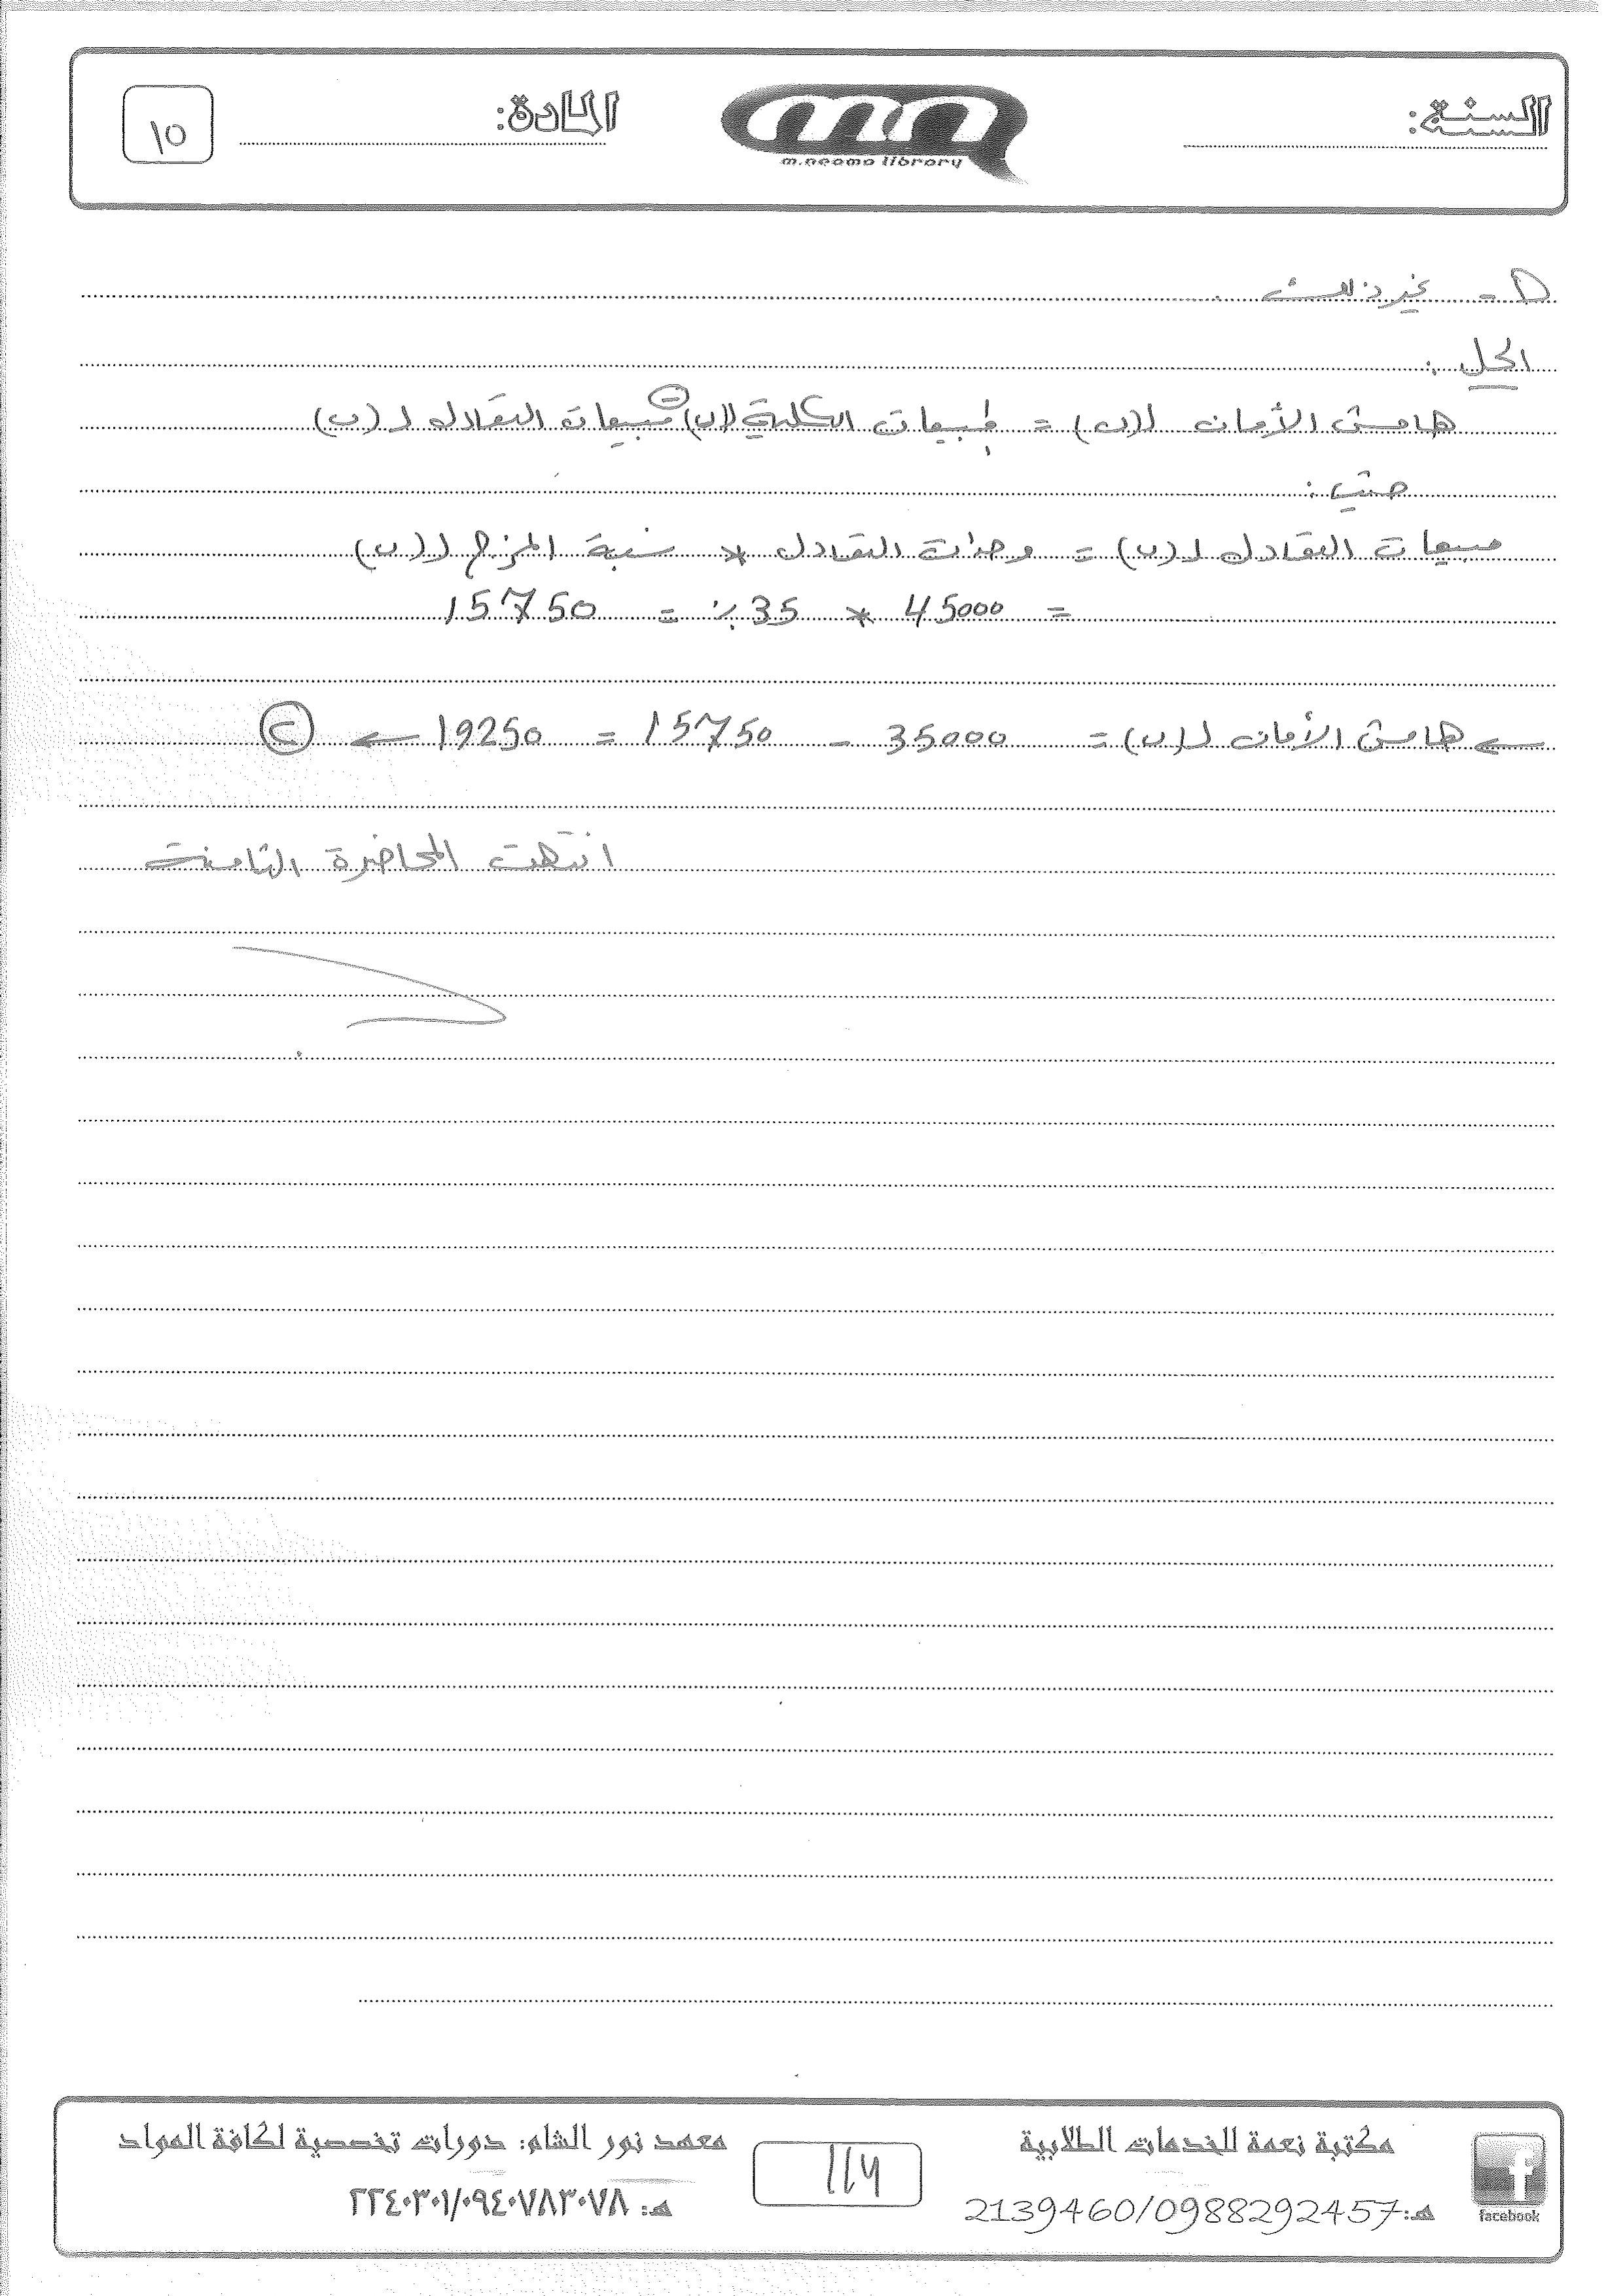 السنة:
mn
m.neama library
المادة:
١٥
D - غير ذلك
الحل:
هامش الأمان لـ(ب) = مبيعات الكلية لـ(ب) - مبيعات التعادل لـ(ب)
حيث:
مبيعات التعادل لـ(ب) = وحدات التعادل * نسبة المزج لـ(ب)
= 45000 * 35٪ = 15750
← هامش الأمان لـ(ب) = 35000 - 15750 = 19250 ← C
انتهت المحاضرة الثامنة
facebook
مكتبة نعمة للخدمات الطلابية
هـ: 2139460/0988292457
معهد نور الشام: دورات تخصصية لكافة المواد
هـ: ٢٢٤٠٣٠١/٠٩٤٠٧٨٣٠٧٨